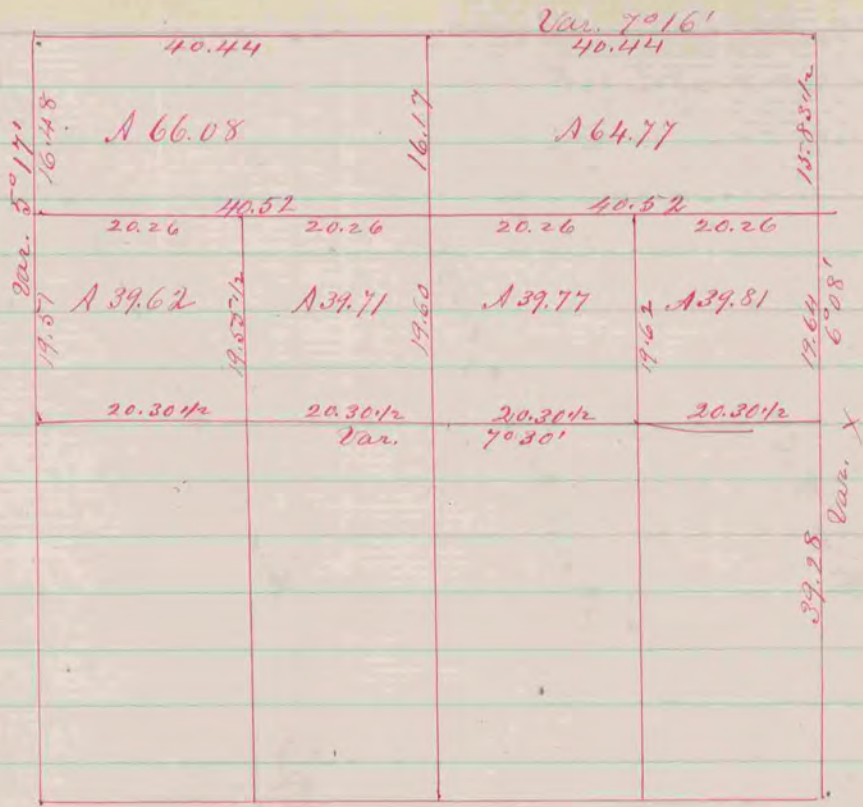 Var. 7°16'
40.44 40.44
Var. 5°17'
16.48
A 66.08
16.17
A 64.77
15.83 1/2
40.52 40.52
20.26 20.26 20.26 20.26
19.57
A 39.62
19.55 1/2
A 39.71
19.60
A 39.77
19.62
A 39.81
19.64
6°08'
20.30 1/2 20.30 1/2 20.30 1/2 20.30 1/2
Var. 7°30'
Var. X
39.28